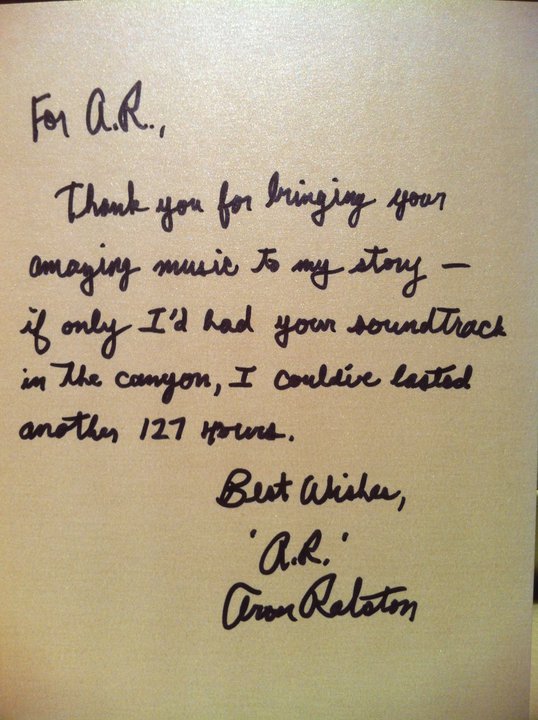 For A.R.,
Thank you for bringing your
amazing music to my story —
if only I'd had your soundtrack
in the canyon, I could've lasted
another 127 Hours.
Best Wishes,
'A.R.'
Aron Ralston